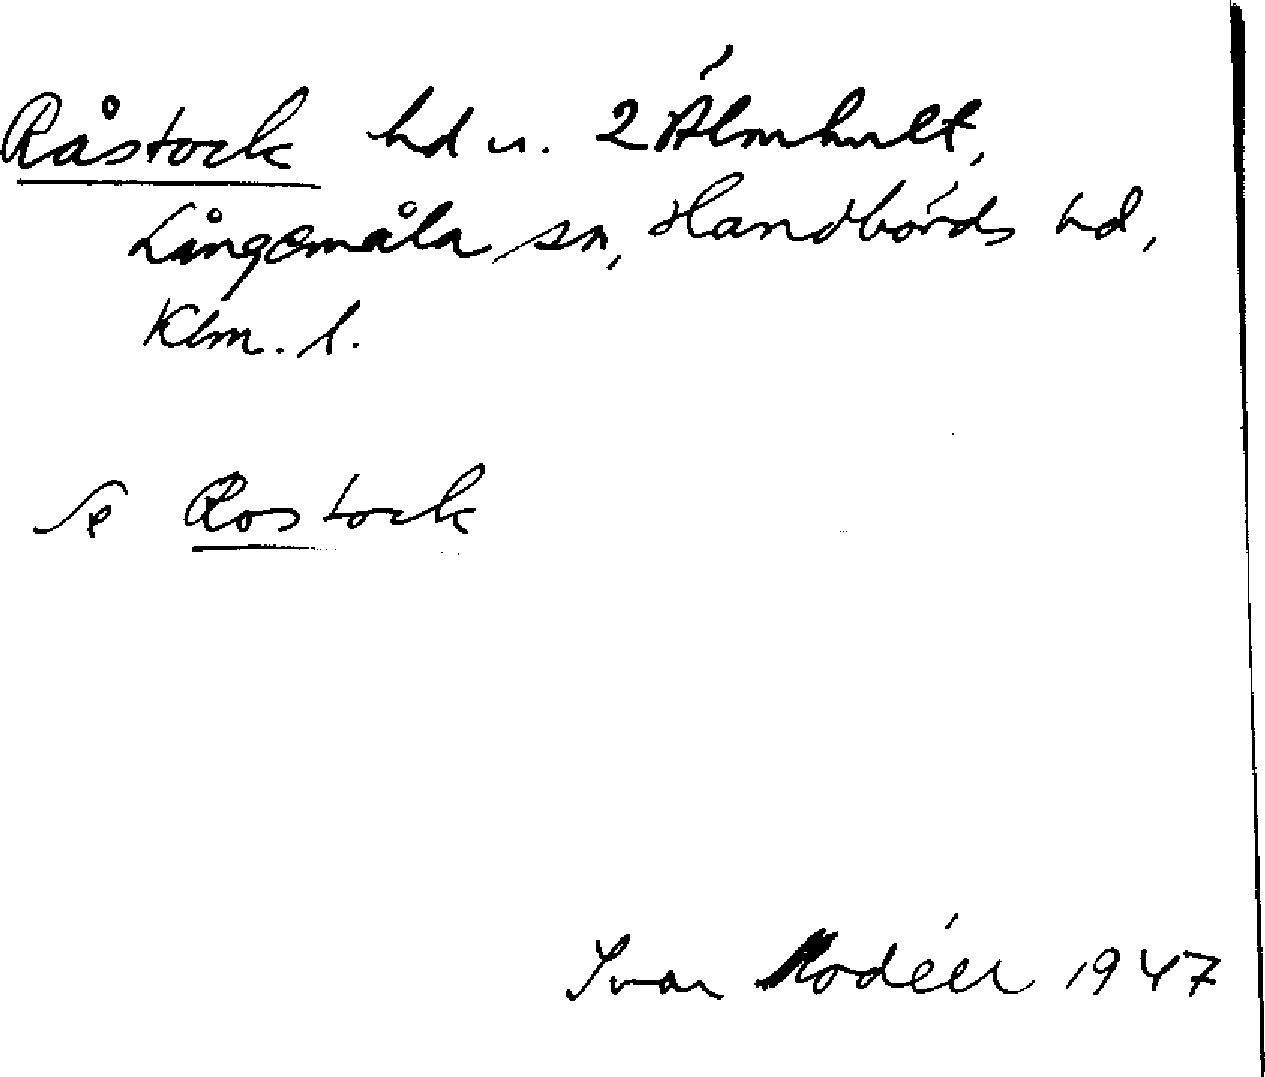 Råstock hd u. 2 Älmhult,
Långemåla sn, Handbörds hd,
Klm. l.
se Rostock
Ivar Modéer 1947